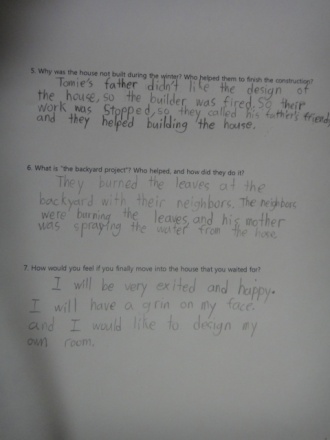 5. Why was the house not built during the winter? Who helped them to finish the construction?
Tomie's father didn't like the design of
the house, so the builder was fired. So their
work was stopped, so they called his father's friends
and they helped building the house.
6. What is "the backyard project"? Who helped, and how did they do it?
They burned the leaves at the
backyard with their neighbors. The neighbors
were burning the leaves and his mother
was spraying the water from the hose
7. How would you feel if you finally move into the house that you waited for?
I will be very exited and happy.
I will have a grin on my face
and I would like to design my
own room.